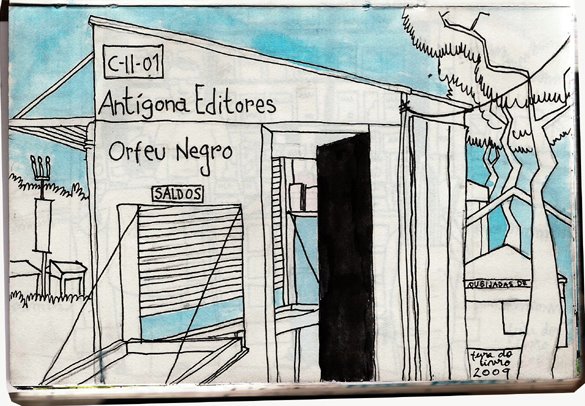 C-11-01
Antígona Editores
Orfeu Negro
SALDOS
QUEIJADAS DE
feira do
livro
2009